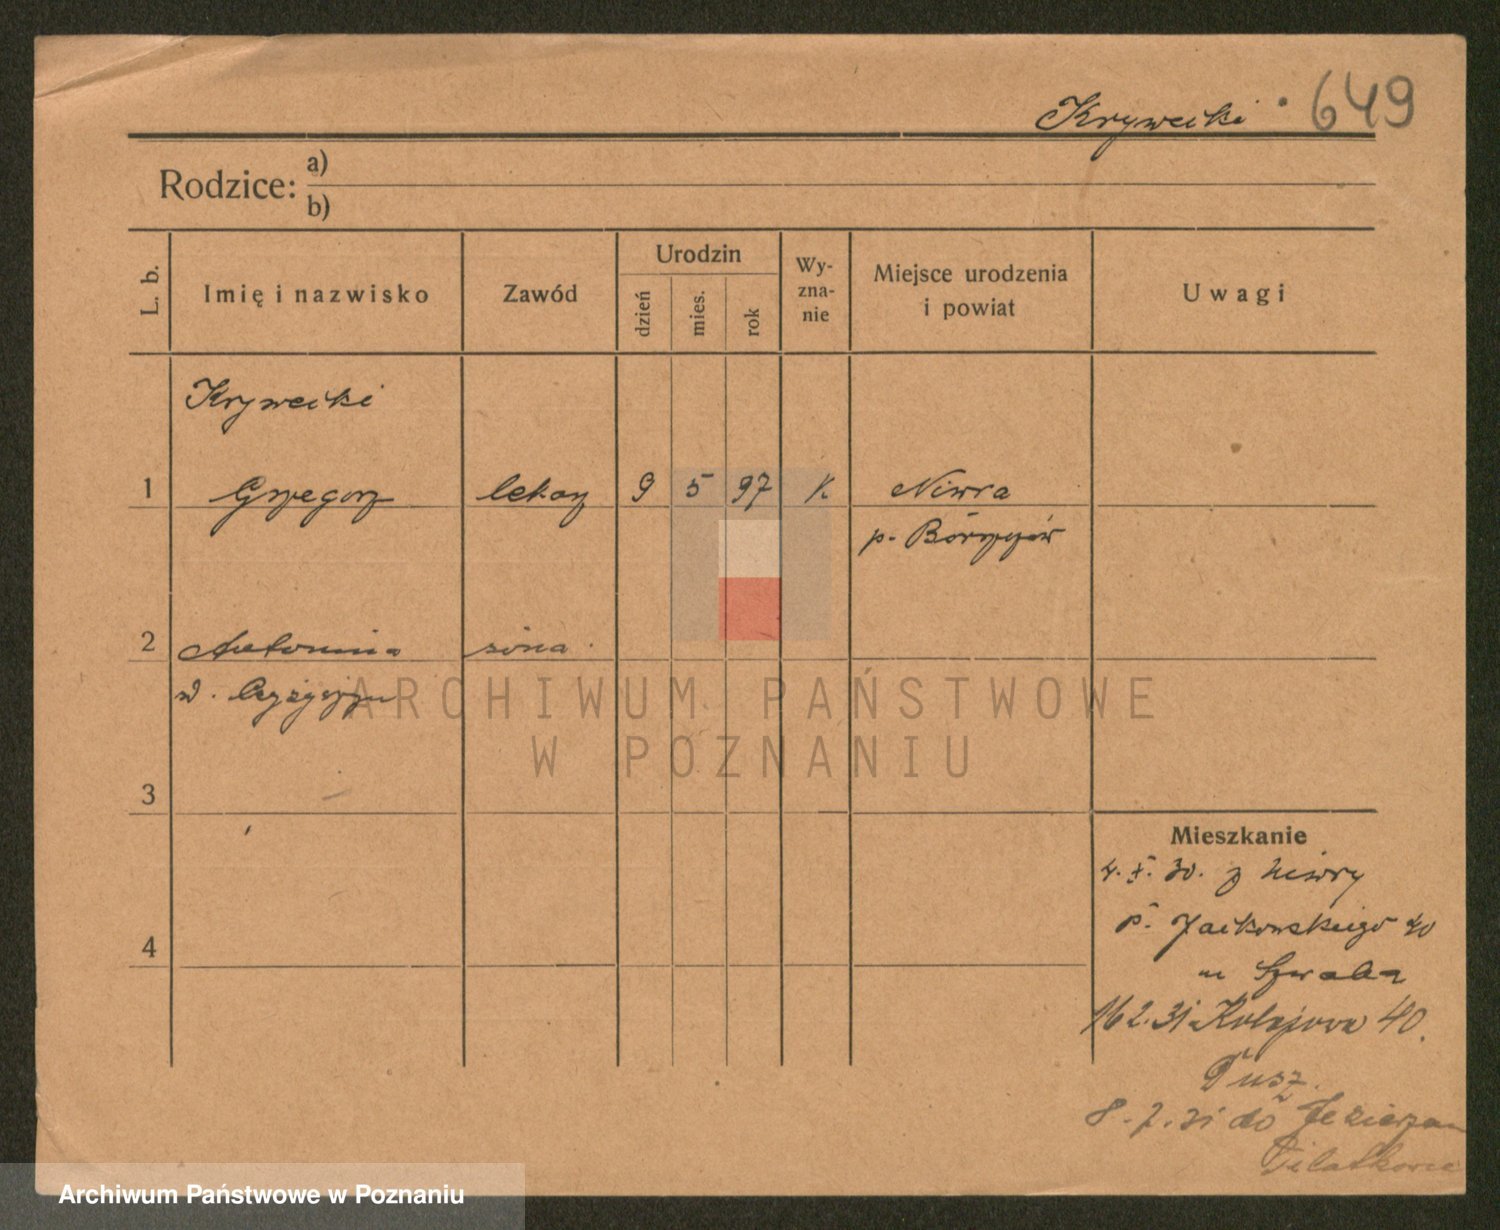 Krywecki 649
Rodzice: a)
b)
L. b. Imię i nazwisko Zawód Urodzin dzień mies. rok Wy-zna-nie Miejsce urodzenia i powiat Uwagi
Krywecki
1 Grzegorz lekarz 9 5 97 K Niwra
p. Bórszczów
2 Antonina żona
3
4
Mieszkanie
4. X. 30. z Niwry
p. Jackowskiego 40
m Szwaba
16 2.31 Kolejowa 40.
8.7.31 do Jezierzan
ARCHIWUM PAŃSTWOWE
W POZNANIU
Archiwum Państwowe w Poznaniu